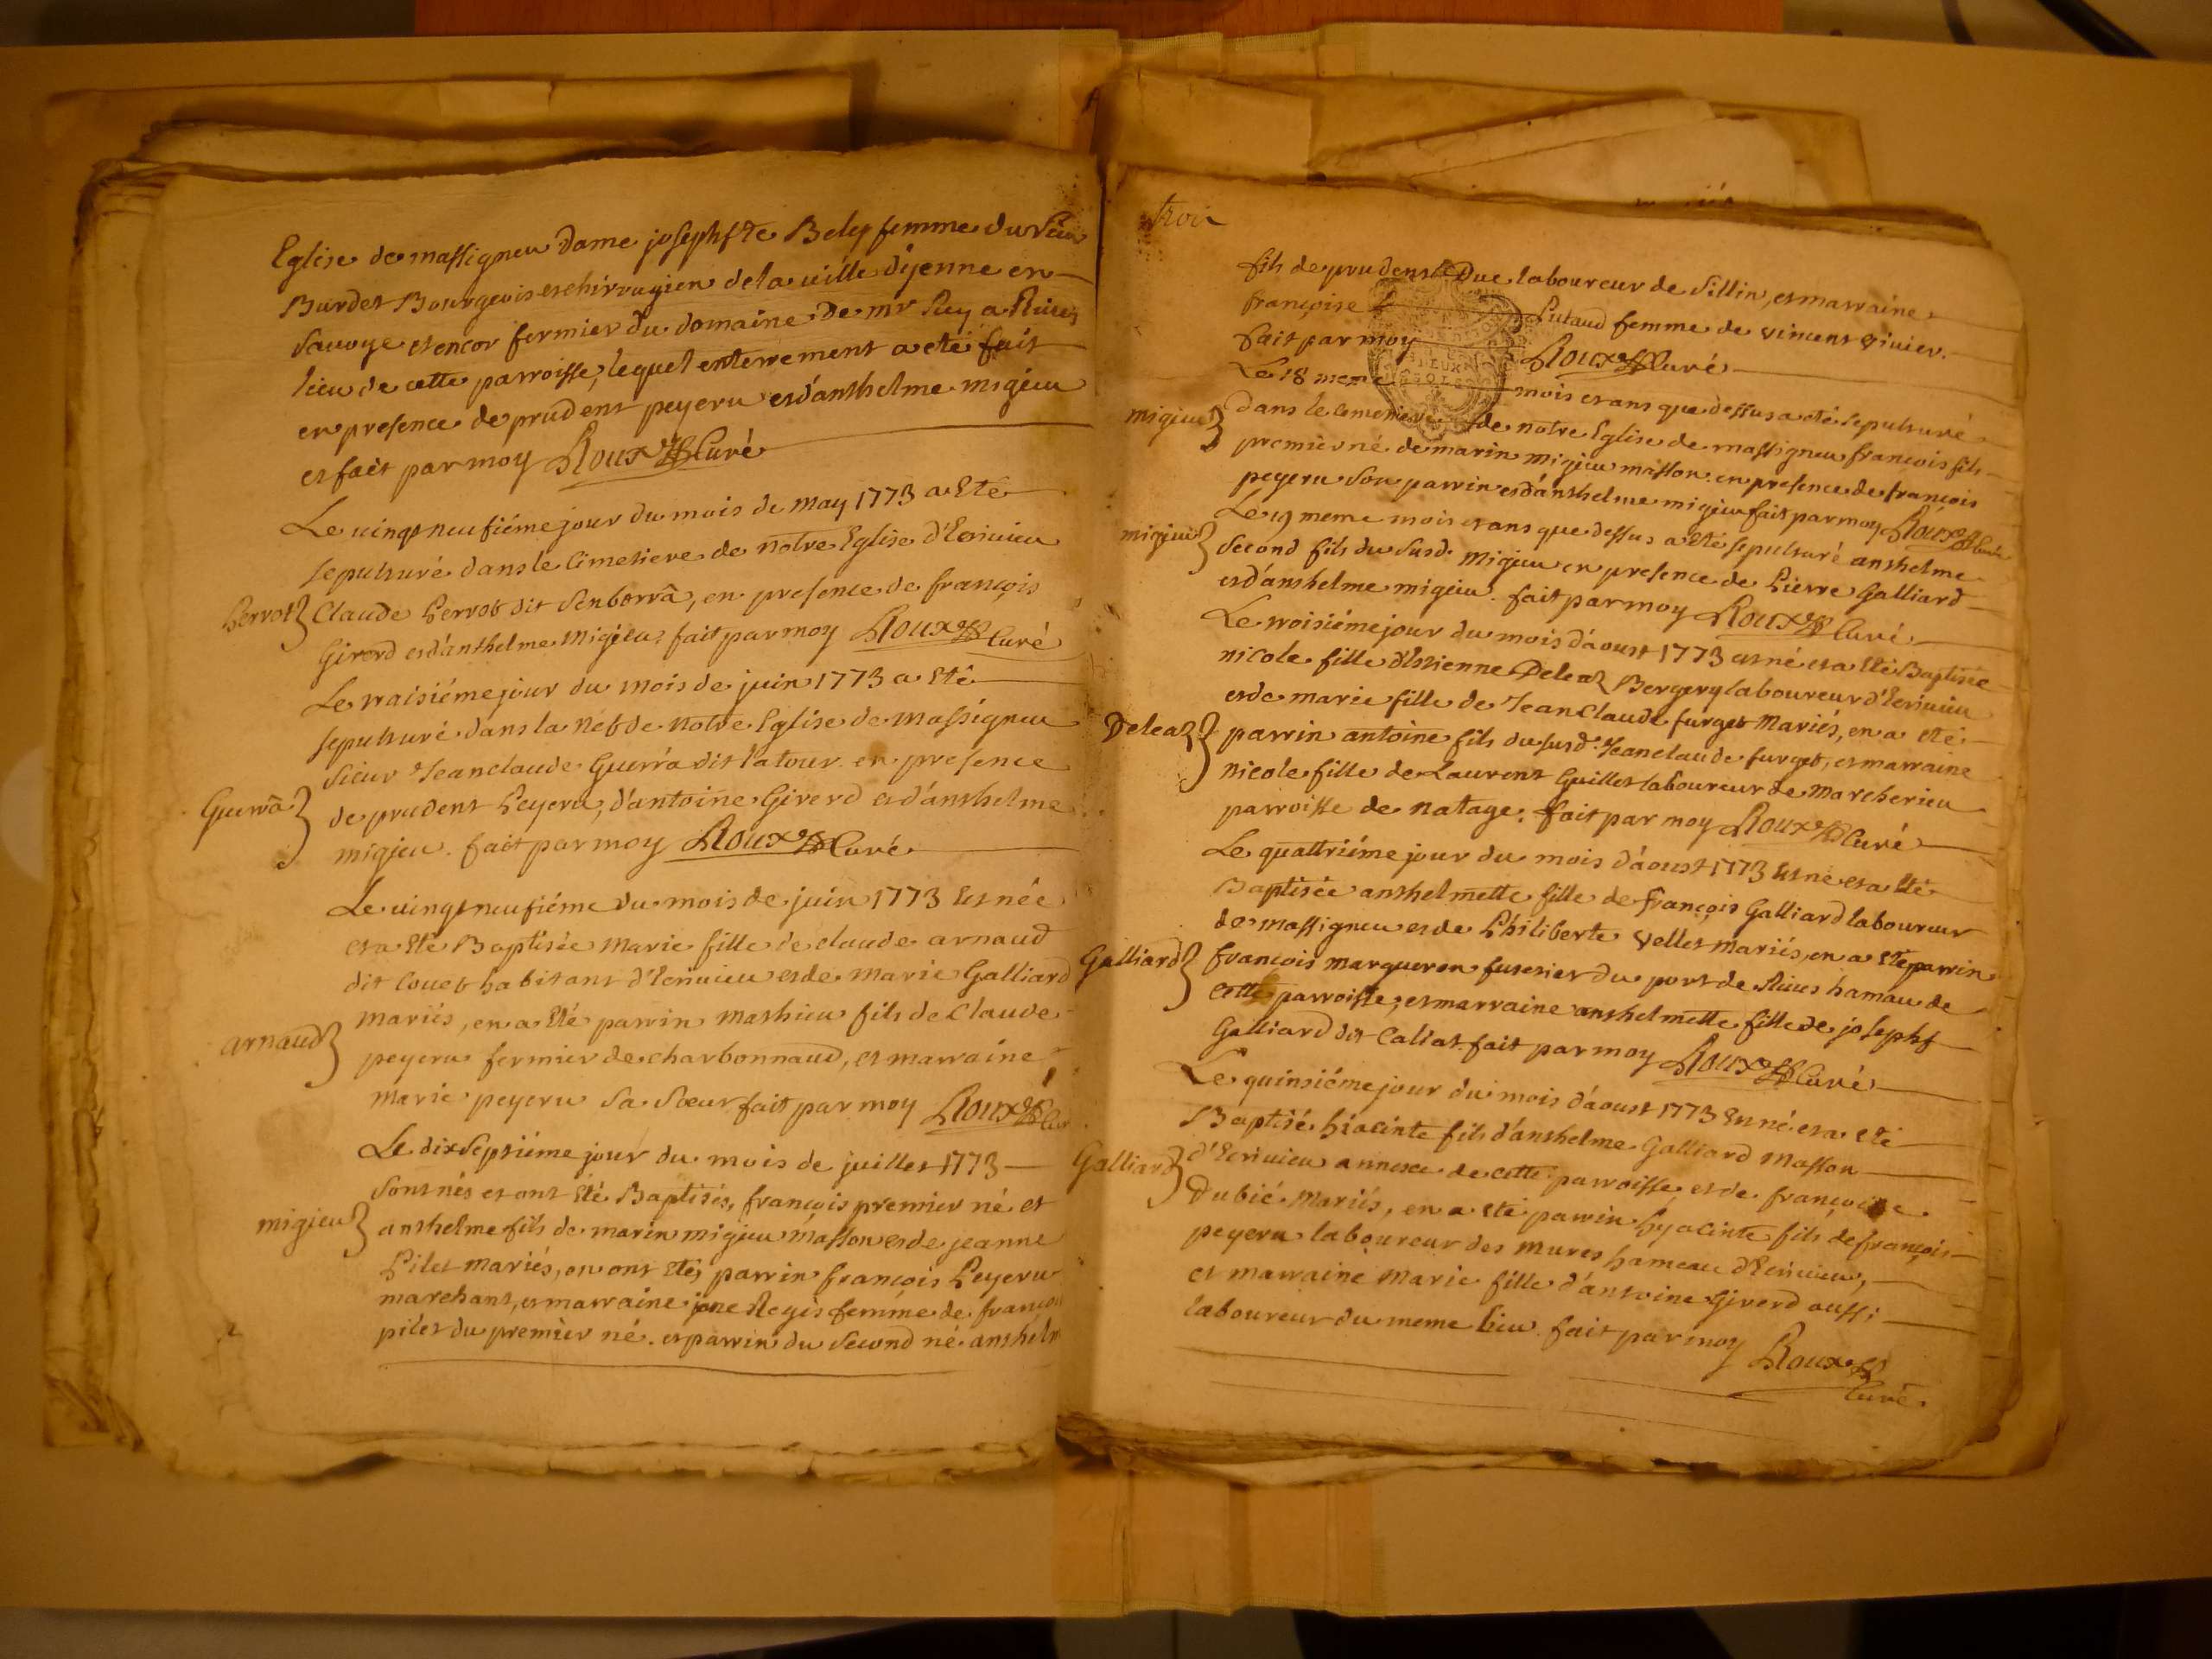 Eglise de massigneu dame josephfte Beley femme du sieur
Burdet Bourgeois et chirrugien de la uille d'yenne en
Sauoye et encor fermier du domaine de mr Rey a Riues
lieu de cette parroisse, lequel enterrement a eté fait
en presence de prudent peyeru et d'anthelme migieu
et fait par moy Roux Curé
Le uingt neufiéme jour du mois de may 1773 a Eté
sepulturé dans le Cimetiere de notre Eglise d'Ecriuieu
Perrot
Claude Perrot dit Senborrâ, en presence de françois
Girerd et d'anthelme Migieu. fait par moy Roux Curé
Le troisiéme jour du mois de juin 1773 a Eté
sepulturé dans la Nef de Notre Eglise de Massigneu
Sieur Jeanclaude Guerrâ dit latour en presence
Guerrâ
de prudent Peyeru, d'antoine Girerd et d'anthelme
migieu. fait par moy Roux Curé
Le uingt neufiéme du mois de juin 1773 Est née
et a Eté Baptisée Marie fille de claude arnaud
dit Couet habitant d'Ecriuieu et de Marie Galliard
mariés, en a Eté parrin mathieu fils de Claude
arnaud
peyeru fermier de charbonnaud, et marraine
Marie peyeru Sa Sœur fait par moy Roux
Le dix septiéme jour du mois de juillet 1773
Sont nés et ont Eté Baptisés, françois premier né et
migieu
anthelme fils de marin migieu masson et de jeanne
Pilet mariés, en ont Etés parrin françois Peyeru
marchant, et marraine jane Regis femme de françois
pilet du premier né. et parrin du Second né anthelm
trois
fils de prudent Duc laboureur de Sillin, et marraine
françoise Putaud femme de vincent Viuier.
fait par moy Roux Curé
Le 18 meme mois et ans que dessus a eté sepulturé
migieu
dans le cimetiere de notre Eglise de massigneu françois fils
premier né de marin migieu masson en presence de françois
peyeru son parrin et d'anthelme migieu fait par moy Roux Curé
migieu
Le 19 meme mois et ans que dessus a Eté sepulturé anthelme
Second fils du susd. migieu en presence de Pierre Galliard
et d'anthelme migieu. fait par moy Roux Curé
Le troisiéme jour du mois d'aoust 1773 est né et a Eté Baptisée
nicole fille d'Estienne Deleaz Bergery laboureur d'Ecriuieu
et de marie fille de Jean Claude furget Mariés, en a eté
Deleaz
parrin antoine fils du susd. Jeanclaude furget, et marraine
Nicole fille de Laurent Guillet laboureur de Marcherieu
parroisse de natage. fait par moy Roux Curé
Le quattriéme jour du mois d'aoust 1773 Est né et a Eté
Baptisée anthelmette fille de françois Galliard laboureur
de massigneu et de Philiberte Vellet mariés, en a Eté parrin
Galliard
françois margueron fuserier du port de Riues hamau de
cette parroisse, et marraine anthelmette fille de josephf
Galliard dit Callat. fait par moy Roux Curé
Le quinsiéme jour du mois d'aoust 1773 Est né et a eté
Baptisé hiacinte fils d'anthelme Galliard Masson
Galliard
d'Ecriuieu annexe de cette parroisse et de françoise
Dubié Mariés, en a eté parrin hyacinte fils de françois
peyeru laboureur des mures hameau d'Ecriuieu,
et marraine Marie fille d'antoine Girerd aussi
laboureur du meme lieu. fait par moy Roux
Curé